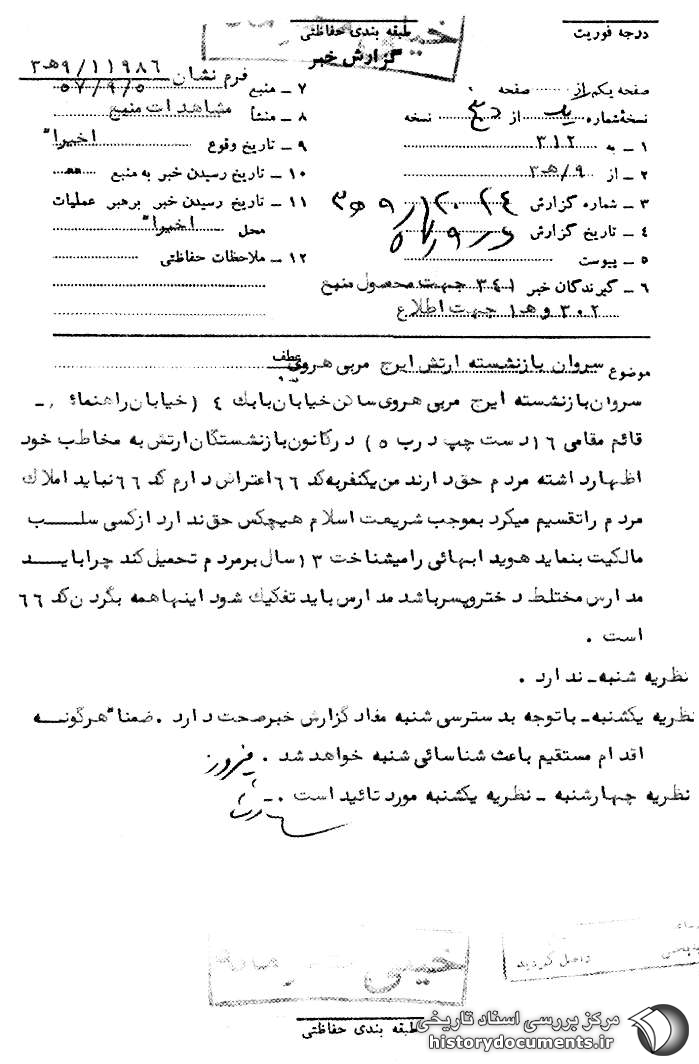 درجه فوریت
طبقه بندی حفاظتی
خیلی محرمانه
گزارش خبر
صفحه یکم از صفحه
نسخهٔ شماره یک از نسخه
۱ – به ۳۱۲
۲ – از ۹/هـ۳
۳ – شماره گزارش ۱۲۰۲۴/۹هـ۳
۴ – تاریخ گزارش
۵ – پیوست
۶ – گیرندگان خبر ۳۴۱ جهت محصول منبع
۳۰۲ و هـ۱ جهت اطلاع
۱۱۹۸۶/۹هـ۳
۷ – منبع فرم نشان ۵۷/۹/۵
۸ – منشأ مشاهدات منبع
۹ – تاریخ وقوع اخیراً
۱۰ – تاریخ رسیدن خبر به منبع
۱۱ – تاریخ رسیدن خبر برهبر عملیات
محل اخیراً
۱۲ – ملاحظات حفاظتی
موضوع سروان بازنشسته ارتش ایرج مربی هروی
عطف
سروان بازنشسته ایرج مربی هروی ساکن خیابان بابک ۴ (خیابان راهنما، –
قائم مقامی ۱۶ دست چپ درب ۵) در کانون بازنشستگان ارتش به مخاطب خود
اظهار داشته مردم حق دارند من یکنفر به کد ۶۶ اعتراض دارم کد ۶۶ نباید املاک
مردم را تقسیم میکرد بموجب شریعت اسلام هیچکس حق ندارد از کسی سلب
مالکیت بنماید هویدا بهائی را میشناخت ۱۳ سال بر مردم تحمیل کند چرا باید
مدارس مختلط دختر و پسر باشد مدارس باید تفکیک شود اینها همه بگردن کد ۶۶
است .
نظریه شنبه – ندارد .
نظریه یکشنبه – با توجه بدسترسی شنبه مفاد گزارش خبر صحت دارد . ضمناً هرگونه
اقدام مستقیم باعث شناسائی شنبه خواهد شد . فیروز
نظریه چهارشنبه – نظریه یکشنبه مورد تائید است . –
خیلی محرمانه
داخل گردید
طبقه بندی حفاظتی
مرکز بررسی اسناد تاریخی
historydocuments.ir